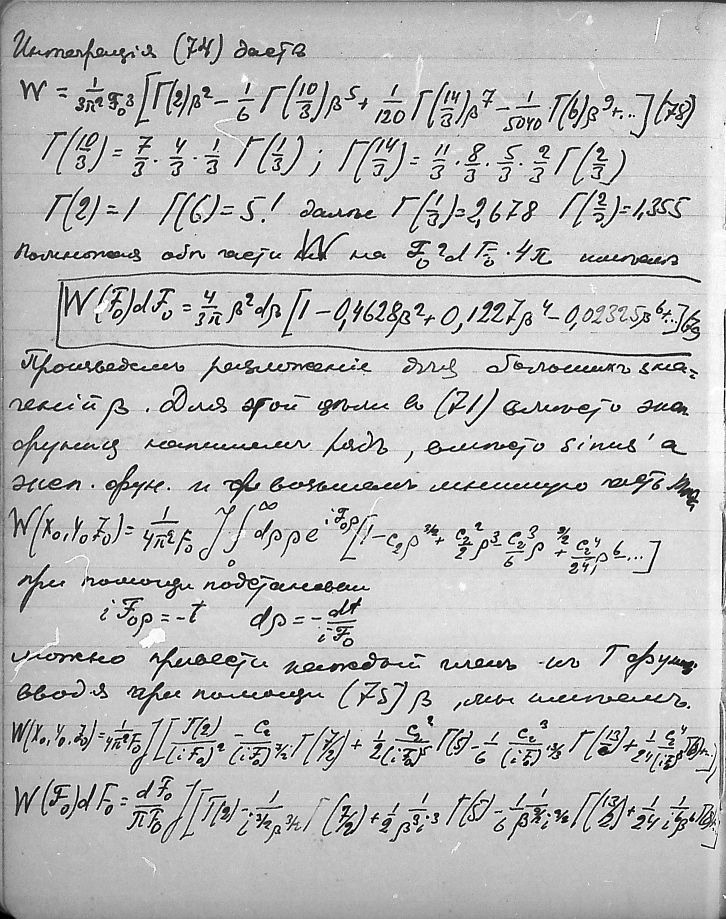 Интеграція (74) даетъ
W = 1/(3π² F₀³) [Γ(2)β² − 1/6 Γ(10/3)β⁵ + 1/120 Γ(14/3)β⁷ − 1/5040 Γ(6)β⁹+...] (78)
Γ(10/3) = 7/3 · 4/3 · 1/3 Γ(1/3) ; Γ(14/3) = 11/3 · 8/3 · 5/3 · 2/3 Γ(2/3)
Γ(2) = 1 Γ(6) = 5! далѣе Γ(1/3) = 2,678 Γ(2/3) = 1,355
Помножая обѣ части W на F₀² dF₀ · 4π имѣемъ
W(F₀)dF₀ = 4/(3π) β² dβ [1 − 0,4628β² + 0,1227β⁴ − 0,02325β⁶+..]
Произведемъ разложеніе для большихъ зна=
ченій β. Для этой цѣли въ (71) вмѣсто эксп
функціи напишемъ рядъ, вмѣсто sinus'а
эксп. фун. и возьмемъ мнимую часть
W(x₀,y₀,z₀) = 1/(4π² F₀) J ∫₀^∞ dρ ρ e^{iF₀ρ} [1 − c₂ρ^{3/2} + c₂²/2 ρ³ − c₂³/6 ρ^{9/2} + c₂⁴/24 ρ⁶ − ...]
при помощи подстановки
iF₀ρ = −t dρ = − dt/(iF₀)
можно привести каждый членъ къ Γ функц.
вводя при помощи (75) β, мы имѣемъ.
W(x₀,y₀,z₀) = 1/(4π² F₀) J [Γ(2)/(iF₀)² − c₂/(iF₀)^{7/2} Γ(7/2) + 1/2 c₂²/(iF₀)⁵ Γ(5) − 1/6 c₂³/(iF₀)^{13/2} Γ(13/2) + 1/24 c₂⁴/(iF₀)⁸ Γ(8)...]
W(F₀)dF₀ = dF₀/(πF₀) J [Γ(2) − 1/(i^{3/2} β^{3/2}) Γ(7/2) + 1/2 1/(β³ i³) Γ(5) − 1/6 1/(β^{9/2} i^{9/2}) Γ(13/2) + 1/24 1/(i⁶ β⁶) Γ(8)...]